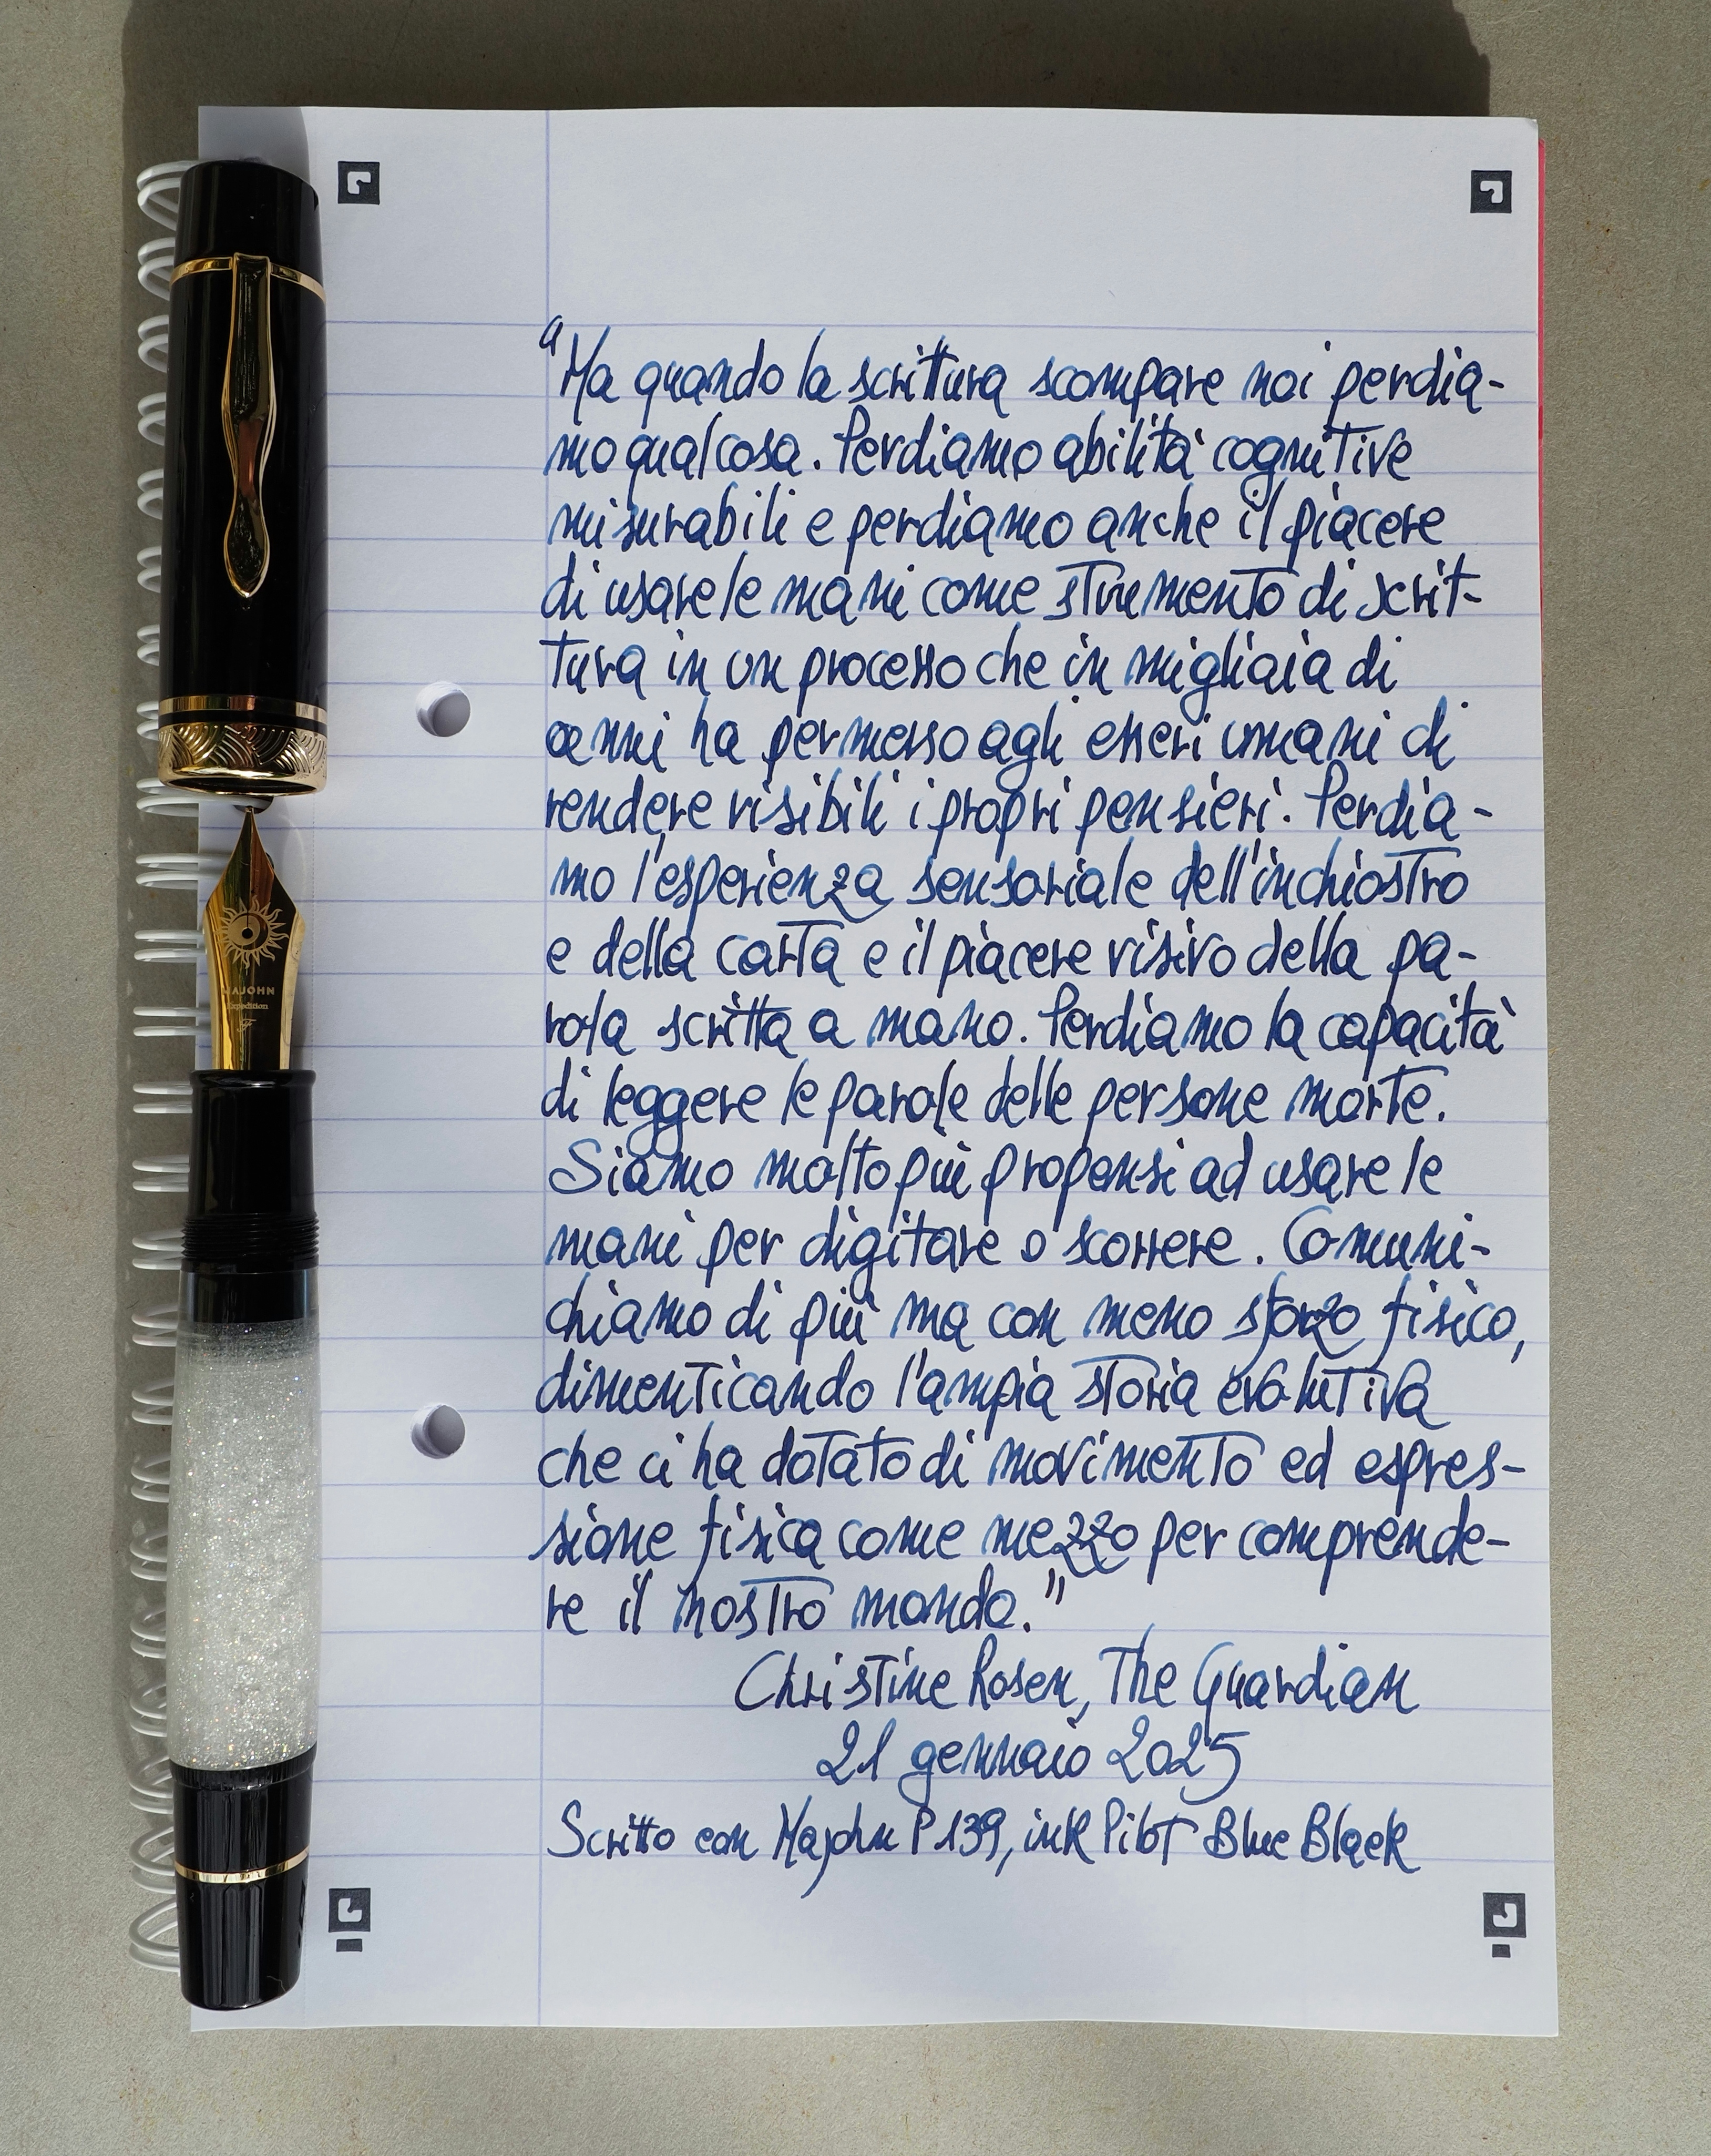 "Ma quando la scrittura scompare noi perdia-
mo qualcosa. Perdiamo abilità cognitive
misurabili e perdiamo anche il piacere
di usare le mani come strumento di scrit-
tura in un processo che in migliaia di
anni ha permesso agli esseri umani di
rendere visibili i propri pensieri. Perdia-
mo l'esperienza sensoriale dell'inchiostro
e della carta e il piacere visivo della pa-
rola scritta a mano. Perdiamo la capacità
di leggere le parole delle persone morte.
Siamo molto più propensi ad usare le
mani per digitare o scorrere. Comuni-
chiamo di più ma con meno sforzo fisico,
dimenticando l'ampia storia evolutiva
che ci ha dotato di movimento ed espres-
sione fisica come mezzo per comprende-
re il nostro mondo."
Christine Rosen, The Guardian
21 gennaio 2025
Scritto con Majohn P139, ink Pilot Blue Black
MAJOHN
Expedition
F